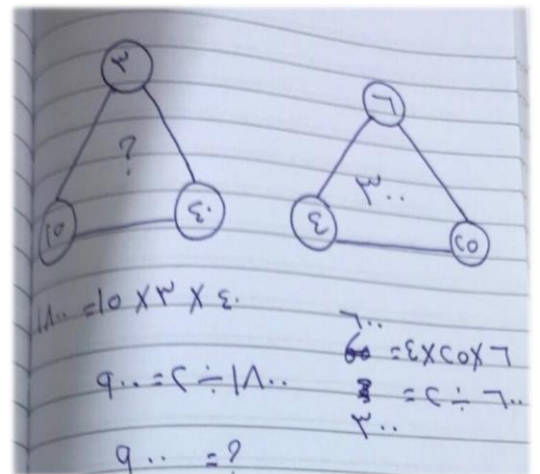 ٣
؟
١٥
٤٠
٦
٣٠٠
٤
٢٥
٤٠ × ٣ × ١٥ = ١٨٠٠
١٨٠٠ ÷ ٢ = ٩٠٠
؟ = ٩٠٠
٦ × ٢٥ × ٤ = ٦٠٠
٦٠٠ ÷ ٢ = ٣٠٠